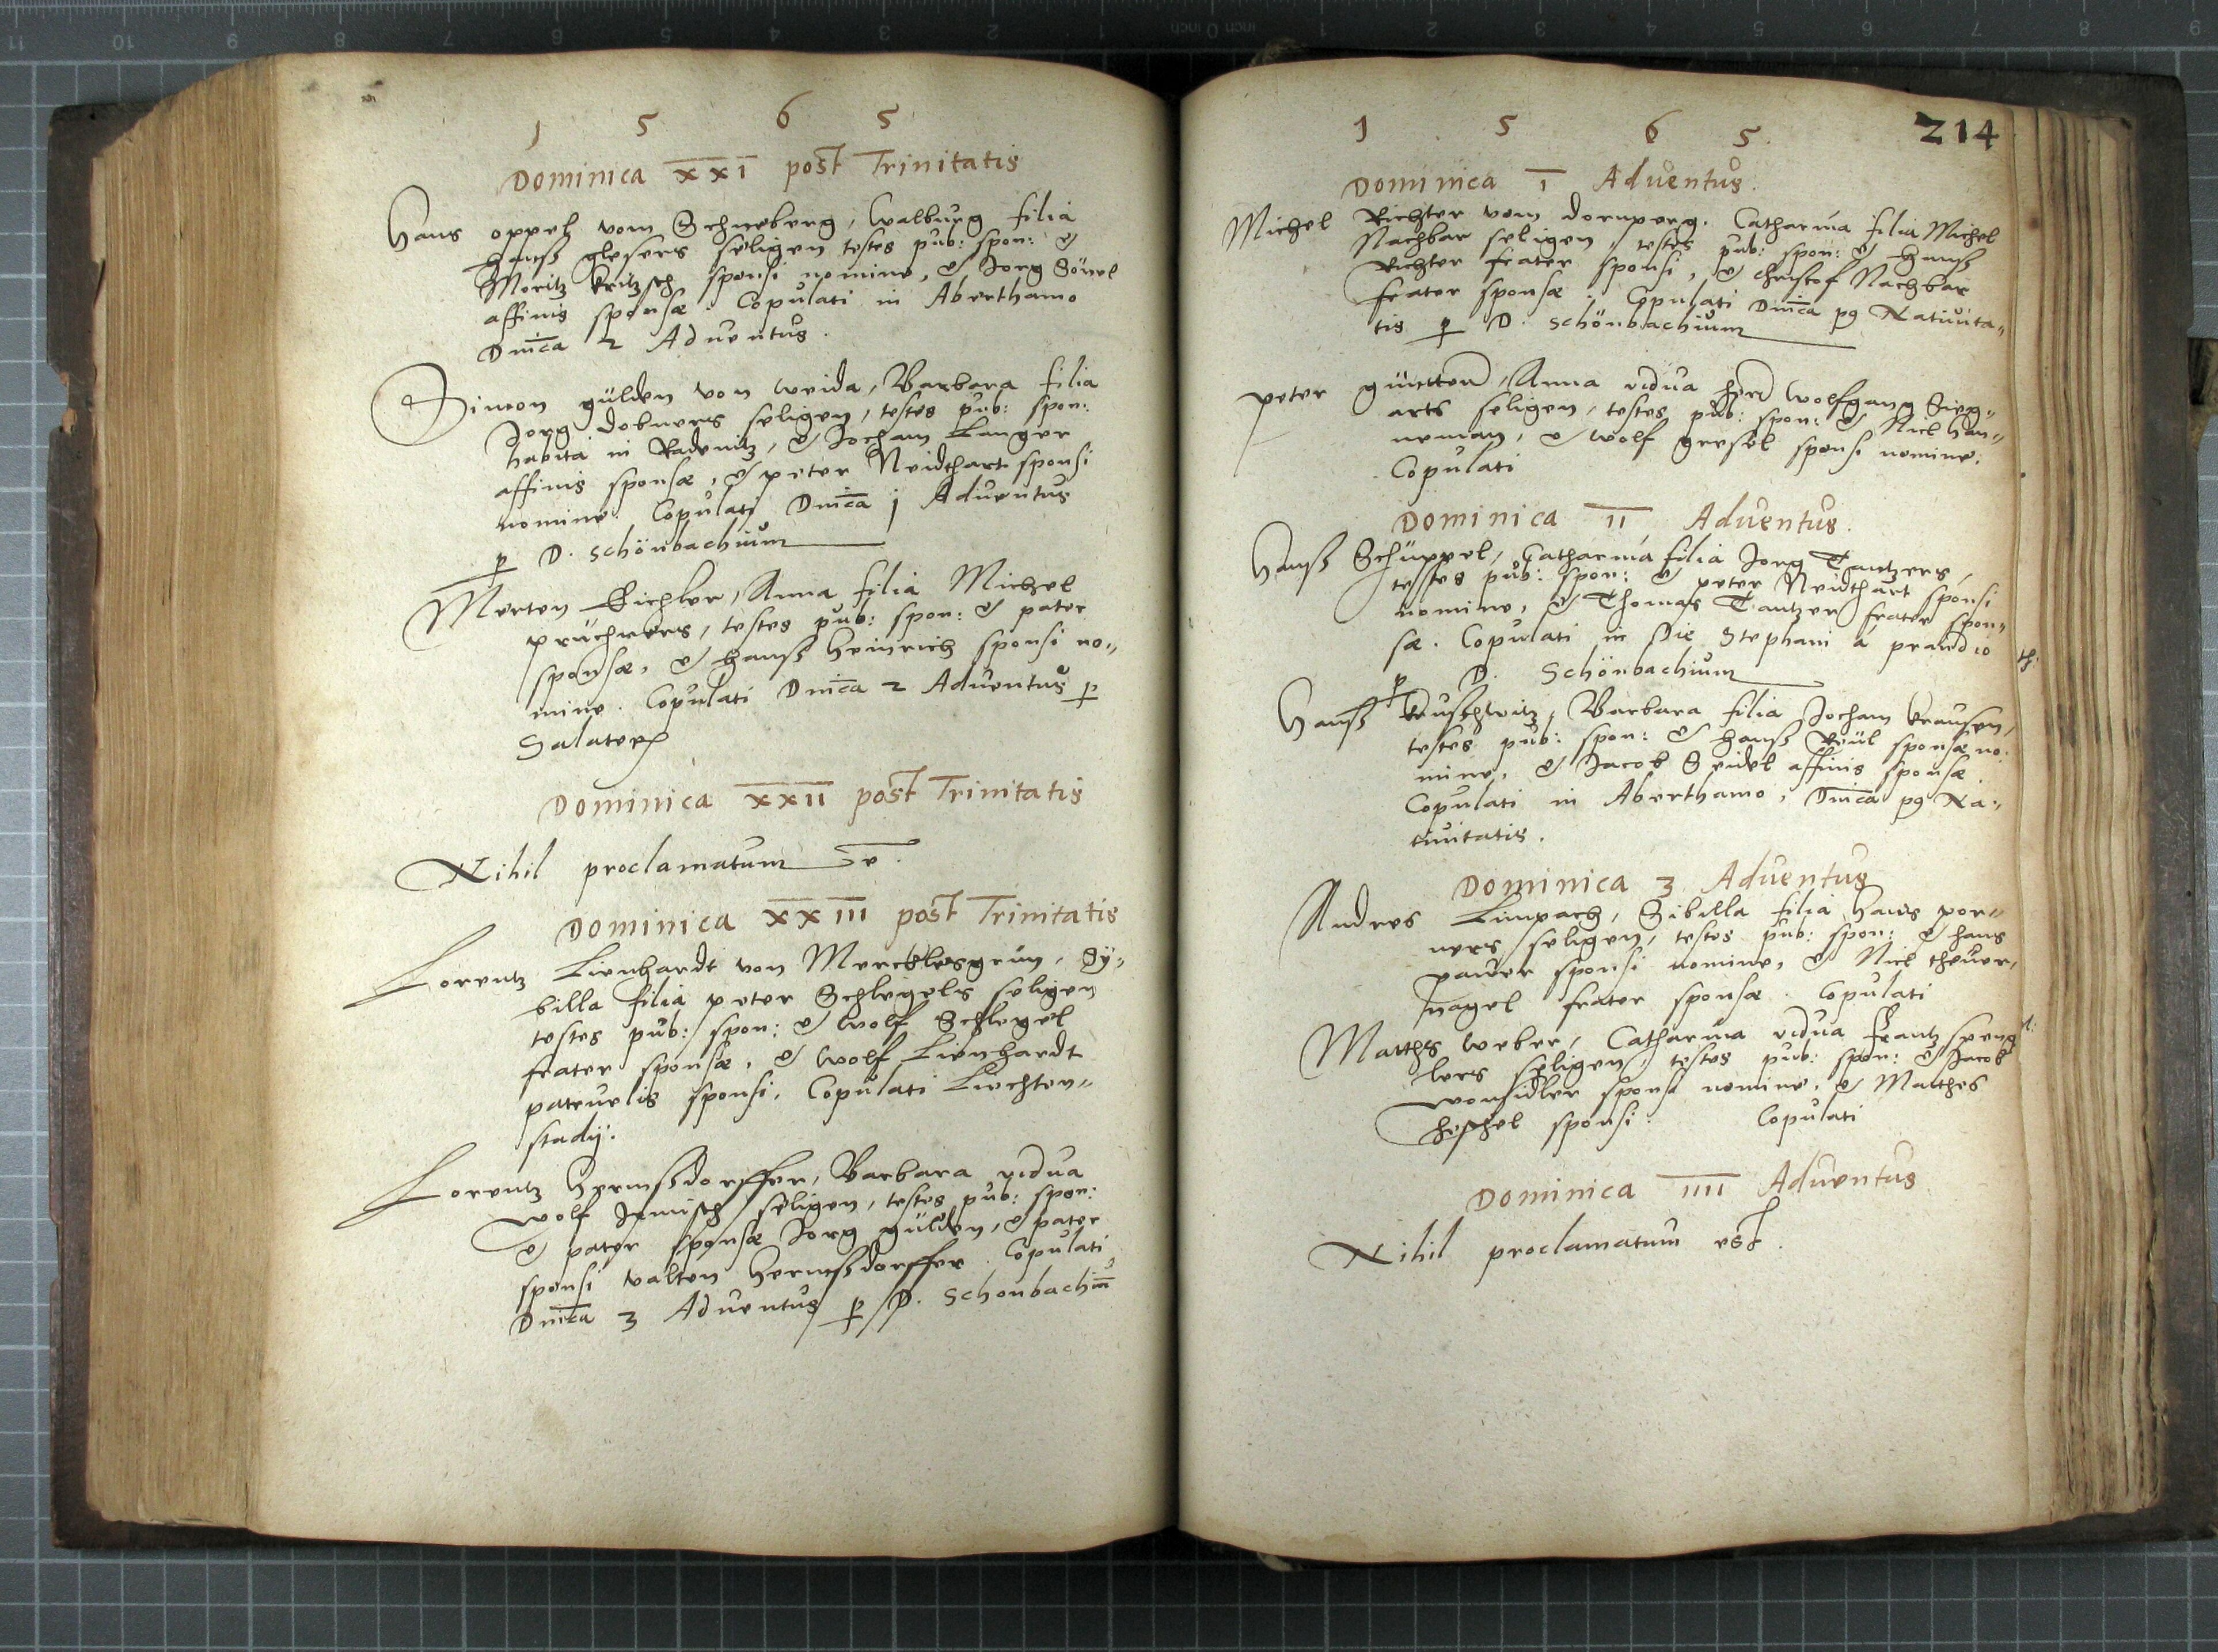 1 5 6 5
Dominica XXI post Trinitatis
Hans oppel vom Schneberg, Walburg filia
Hanß glesers seligen testes pub: spon: &
Moritz kritzsch sponsi nomine, & Jorg
affinis sponsæ. Copulati in Aberthamo
Dnica 2 Adventus.
Simon gülden von weida, Barbara filia
Jorg dobners seligen, testes pub: spon:
habita in Radenitz, & Jocham Langer
affinis sponsæ, & peter Neidthart sponsi
nomine. Copulati Dnica 1 Adventus
p D. Schönbachium
Merten Eichler, Anna filia Michel
testes pub: spon: & pater
sponsæ, & hanß Heinrich sponsi no„
mine. Copulati Dnica 2 Adventus p
Salater
Dominica XXII post Trinitatis
Nihil proclamatum e.
Dominica XXIII post Trinitatis
Lorentz Lienhardt von Mercklesgrün, Sy„
billa filia peter Schlegels seligen
testes pub: spon: & wolf Schlegel
frater sponsæ, & Wolf Lienhardt
patruelis sponsi, Copulati Liechten„
stadij.
Lorentz Hermßdorffer, Barbara vidua
Wolf Jrmisch seligen, testes pub: spon:
& pater sponsæ Jorg gülden, & pater
sponsi valten Hermßdorffer. Copulati
Dnica 3 Adventus p D. Schonbachiu
1 5 6 5.
214
Dominica I Adventus.
Michel Richter vom dornperg. Catharina filia Michel
Nachbar seligen, testes pub: spon: & hanß
Richter frater sponsi, & Christof Nachbar
frater sponsæ. Copulati Dnica p9 Nativita„
tis p D. Schönbachium
peter Anna vidua Wolfgang Sieg„
arts seligen, testes pub: spon: & Nicl han„
neman, & wolf gresel sponsi nomine.
Copulati
Dominica II Adventus.
Hanß Schüppel, Catharina filia Jorg Tantzers,
testes pub: spon: & peter Neidthart sponsi
nomine, & Thomas Tantzer frater spon„
sæ. Copulati in die Stephani à prandio
p D. Schönbachium
Hanß Barbara filia Jocham krausen,
testes pub: spon: & hanß sponsæ no:
mine, & Jacob Seidel affinis sponsæ.
Copulati in Aberthamo, Dnica p9 Na„
tivitatis.
Dominica 3 Adventus
Andres Limpach, Sibilla filia Hans por„
ners seligen, testes pub: spon: & hans
paur sponsi nomine, & Nicl theuer„
nagel frater sponsæ. Copulati
Matthes Weber, Catharina vidua Frantz speng
lers seligen, testes pub: spon: & Jacob
wonsidler sponsæ nomine, & Matthes
heschel sponsi. Copulati
Dominica IIII Adventus
Nihil proclamatum est.